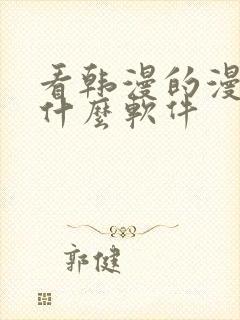 看韩漫的漫
什麼軟件
郭健